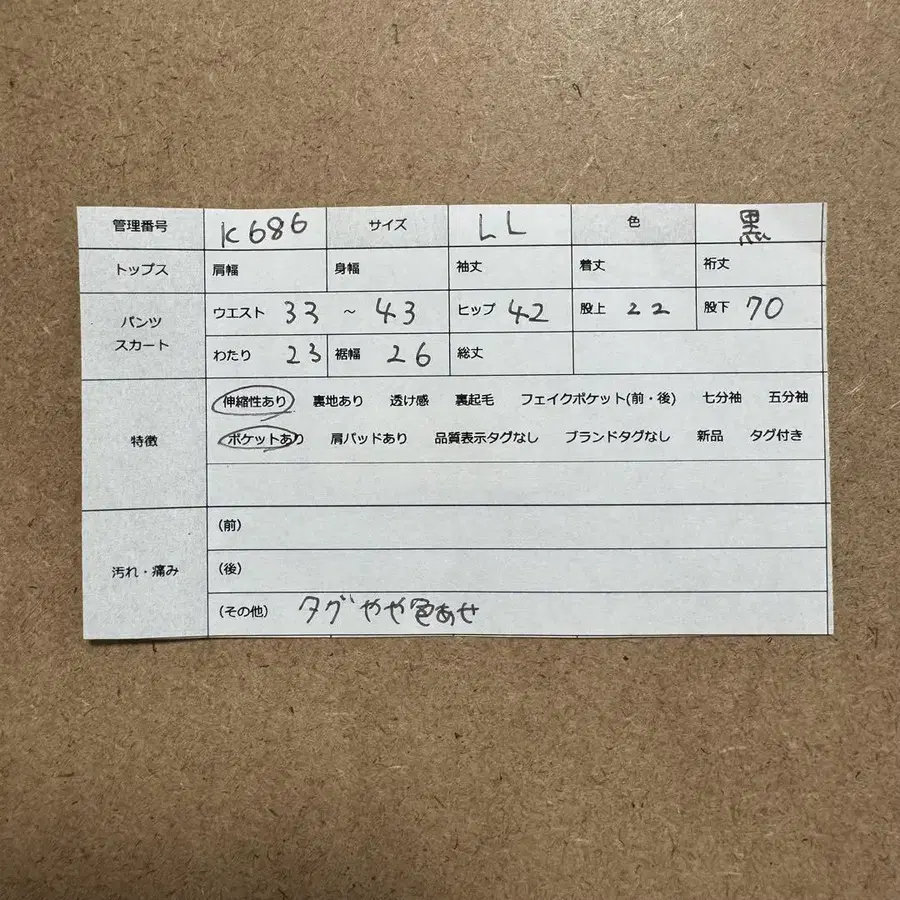 管理番号 K686 サイズ LL 色 黒
トップス 肩幅 身幅 袖丈 着丈 裄丈
パンツ スカート
ウエスト 33 ~ 43 ヒップ 42 股上 22 股下 70
わたり 23 裾幅 26 総丈
特徴
伸縮性あり 裏地あり 透け感 裏起毛 フェイクポケット(前・後) 七分袖 五分袖
ポケットあり 肩パッドあり 品質表示タグなし ブランドタグなし 新品 タグ付き
汚れ・痛み
(前)
(後)
(その他) タグやや色あせ